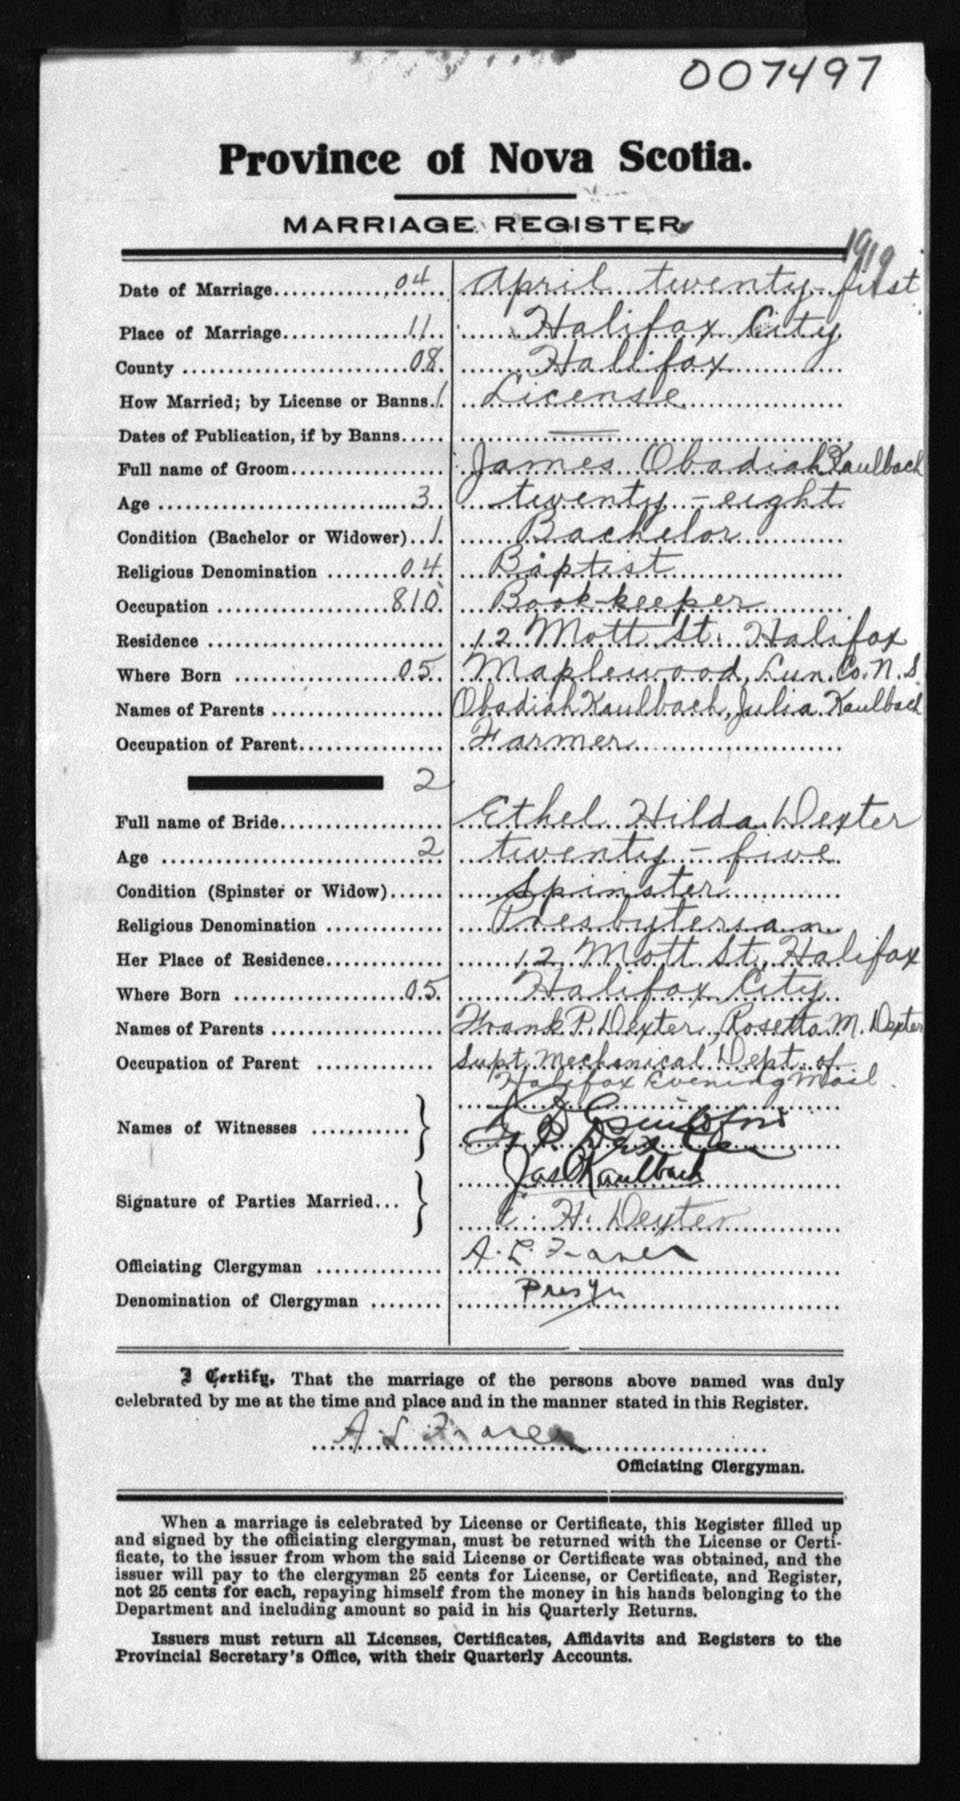 007497
Province of Nova Scotia.
MARRIAGE REGISTER
1919
Date of Marriage 04 April twenty-first
Place of Marriage 11 Halifax City
County 08 Halifax
How Married; by License or Banns 1 License
Dates of Publication, if by Banns —
Full name of Groom James Obadiah Kaulbach
Age 3 twenty-eight
Condition (Bachelor or Widower) 1 Bachelor
Religious Denomination 04 Baptist
Occupation 810 Book-keeper
Residence 12 Mott St. Halifax
Where Born 05 Maplewood, Lun. Co. N. S.
Names of Parents Obadiah Kaulbach, Julia Kaulbach
Occupation of Parent Farmer
2
Full name of Bride Ethel Hilda Dexter
Age 2 twenty-five
Condition (Spinster or Widow) Spinster
Religious Denomination Presbyterian
Her Place of Residence 12 Mott St, Halifax
Where Born 05 Halifax City
Names of Parents Frank P. Dexter, Rosetta M. Dexter
Occupation of Parent Supt. Mechanical Dept. of
Halifax Evening Mail.
Names of Witnesses
F P Dexter
Jas O Kaulbach
Signature of Parties Married
E. H. Dexter
Officiating Clergyman A. L. Fraser
Denomination of Clergyman Presyn
I Certify, That the marriage of the persons above named was duly
celebrated by me at the time and place and in the manner stated in this Register.
A. L Fraser
Officiating Clergyman.
When a marriage is celebrated by License or Certificate, this Register filled up
and signed by the officiating clergyman, must be returned with the License or Certi-
ficate, to the issuer from whom the said License or Certificate was obtained, and the
issuer will pay to the clergyman 25 cents for License, or Certificate, and Register,
not 25 cents for each, repaying himself from the money in his hands belonging to the
Department and including amount so paid in his Quarterly Returns.
Issuers must return all Licenses, Certificates, Affidavits and Registers to the
Provincial Secretary's Office, with their Quarterly Accounts.